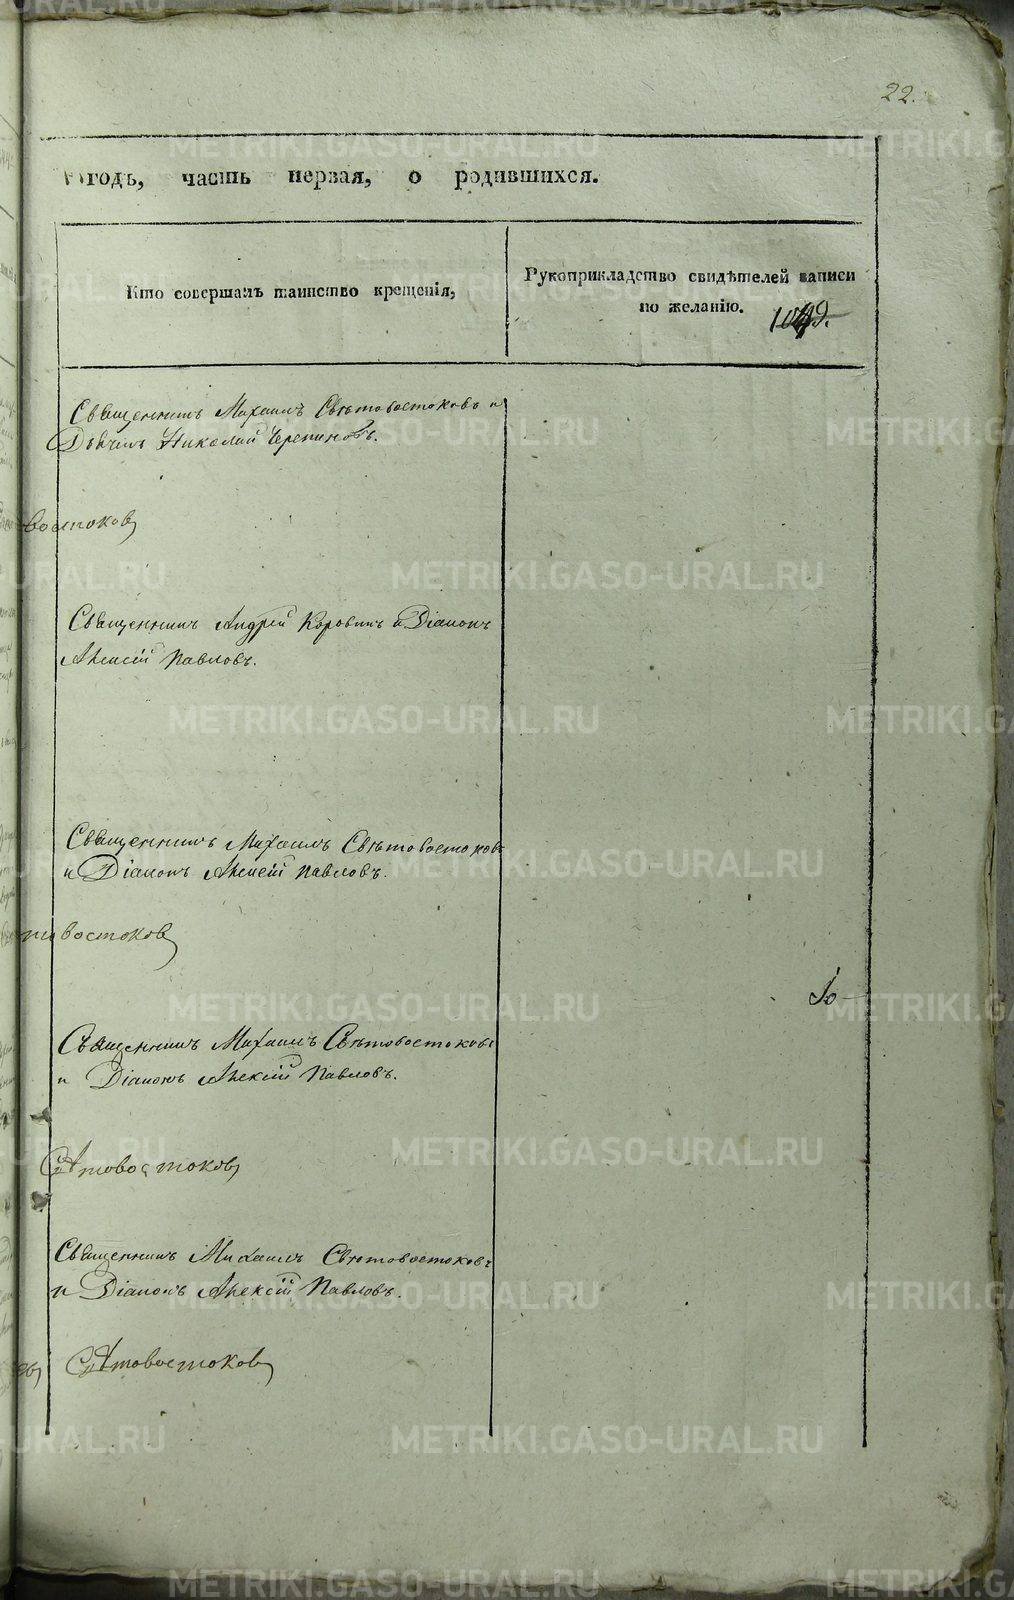 22.
годъ, часть первая, о родившихся.
Кто совершалъ таинство крещенія,
Рукоприкладство свидѣтелей записи
по желанію.
Священникъ Михаилъ Свѣтовостоковъ и
Дьячекъ Николай Черепановъ.
востоковъ
Священникъ Андрей Коровинъ и Діаконъ
Алексій Павловъ.
Священникъ Михаилъ Свѣтовостоковъ
и Діаконъ Алексій Павловъ.
товостоковъ
Священникъ Михаилъ Свѣтовостоковъ
и Діаконъ Алексій Павловъ.
Свѣтовостоковъ
Священникъ Михаилъ Свѣтовостоковъ
и Діаконъ Алексій Павловъ.
Свѣтовостоковъ
METRIKI.GASO-URAL.RU